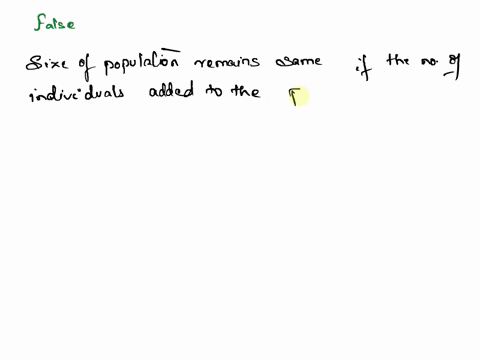 false
Size of population remains same if the no of
individuals added to the